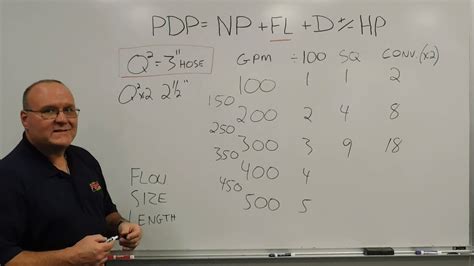 PDP= NP + FL + D +/- HP
Q² = 3" HOSE
Q²x2 2½"
GPM ÷100 SQ CONV. (x2)
100 1 1 2
150
200 2 4 8
250
300 3 9 18
400 4
450
500 5
FLOW
SIZE
LENGTH